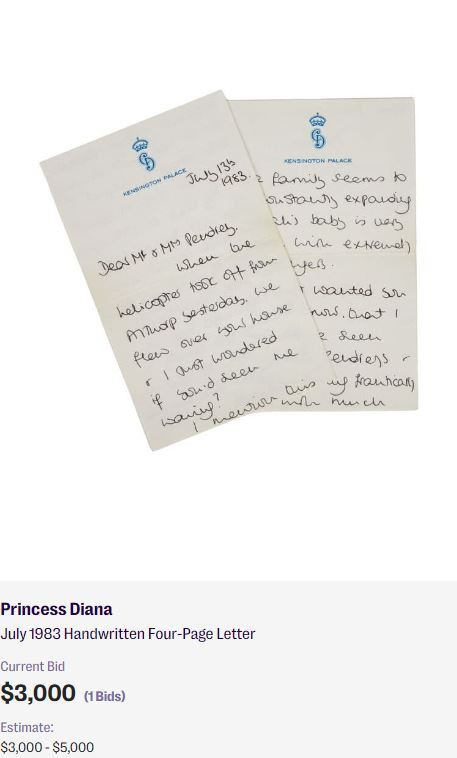 KENSINGTON PALACE
July 13th
1983.
Dear Mr & Mrs Pendrey,
When the
helicopter took off from
Althorp yesterday, we
flew over your house
& I just wondered
if you'd seen me
waving?
I mention this
KENSINGTON PALACE
family seems to
constantly expanding
this baby is very
with extremely
wanted you
know, that I
seen
Pendreys &
frantically
with much
Princess Diana
July 1983 Handwritten Four-Page Letter
Current Bid
$3,000 (1 Bids)
Estimate:
$3,000 - $5,000